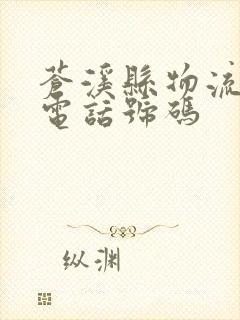 蒼溪縣物流
電話號碼
纵渊